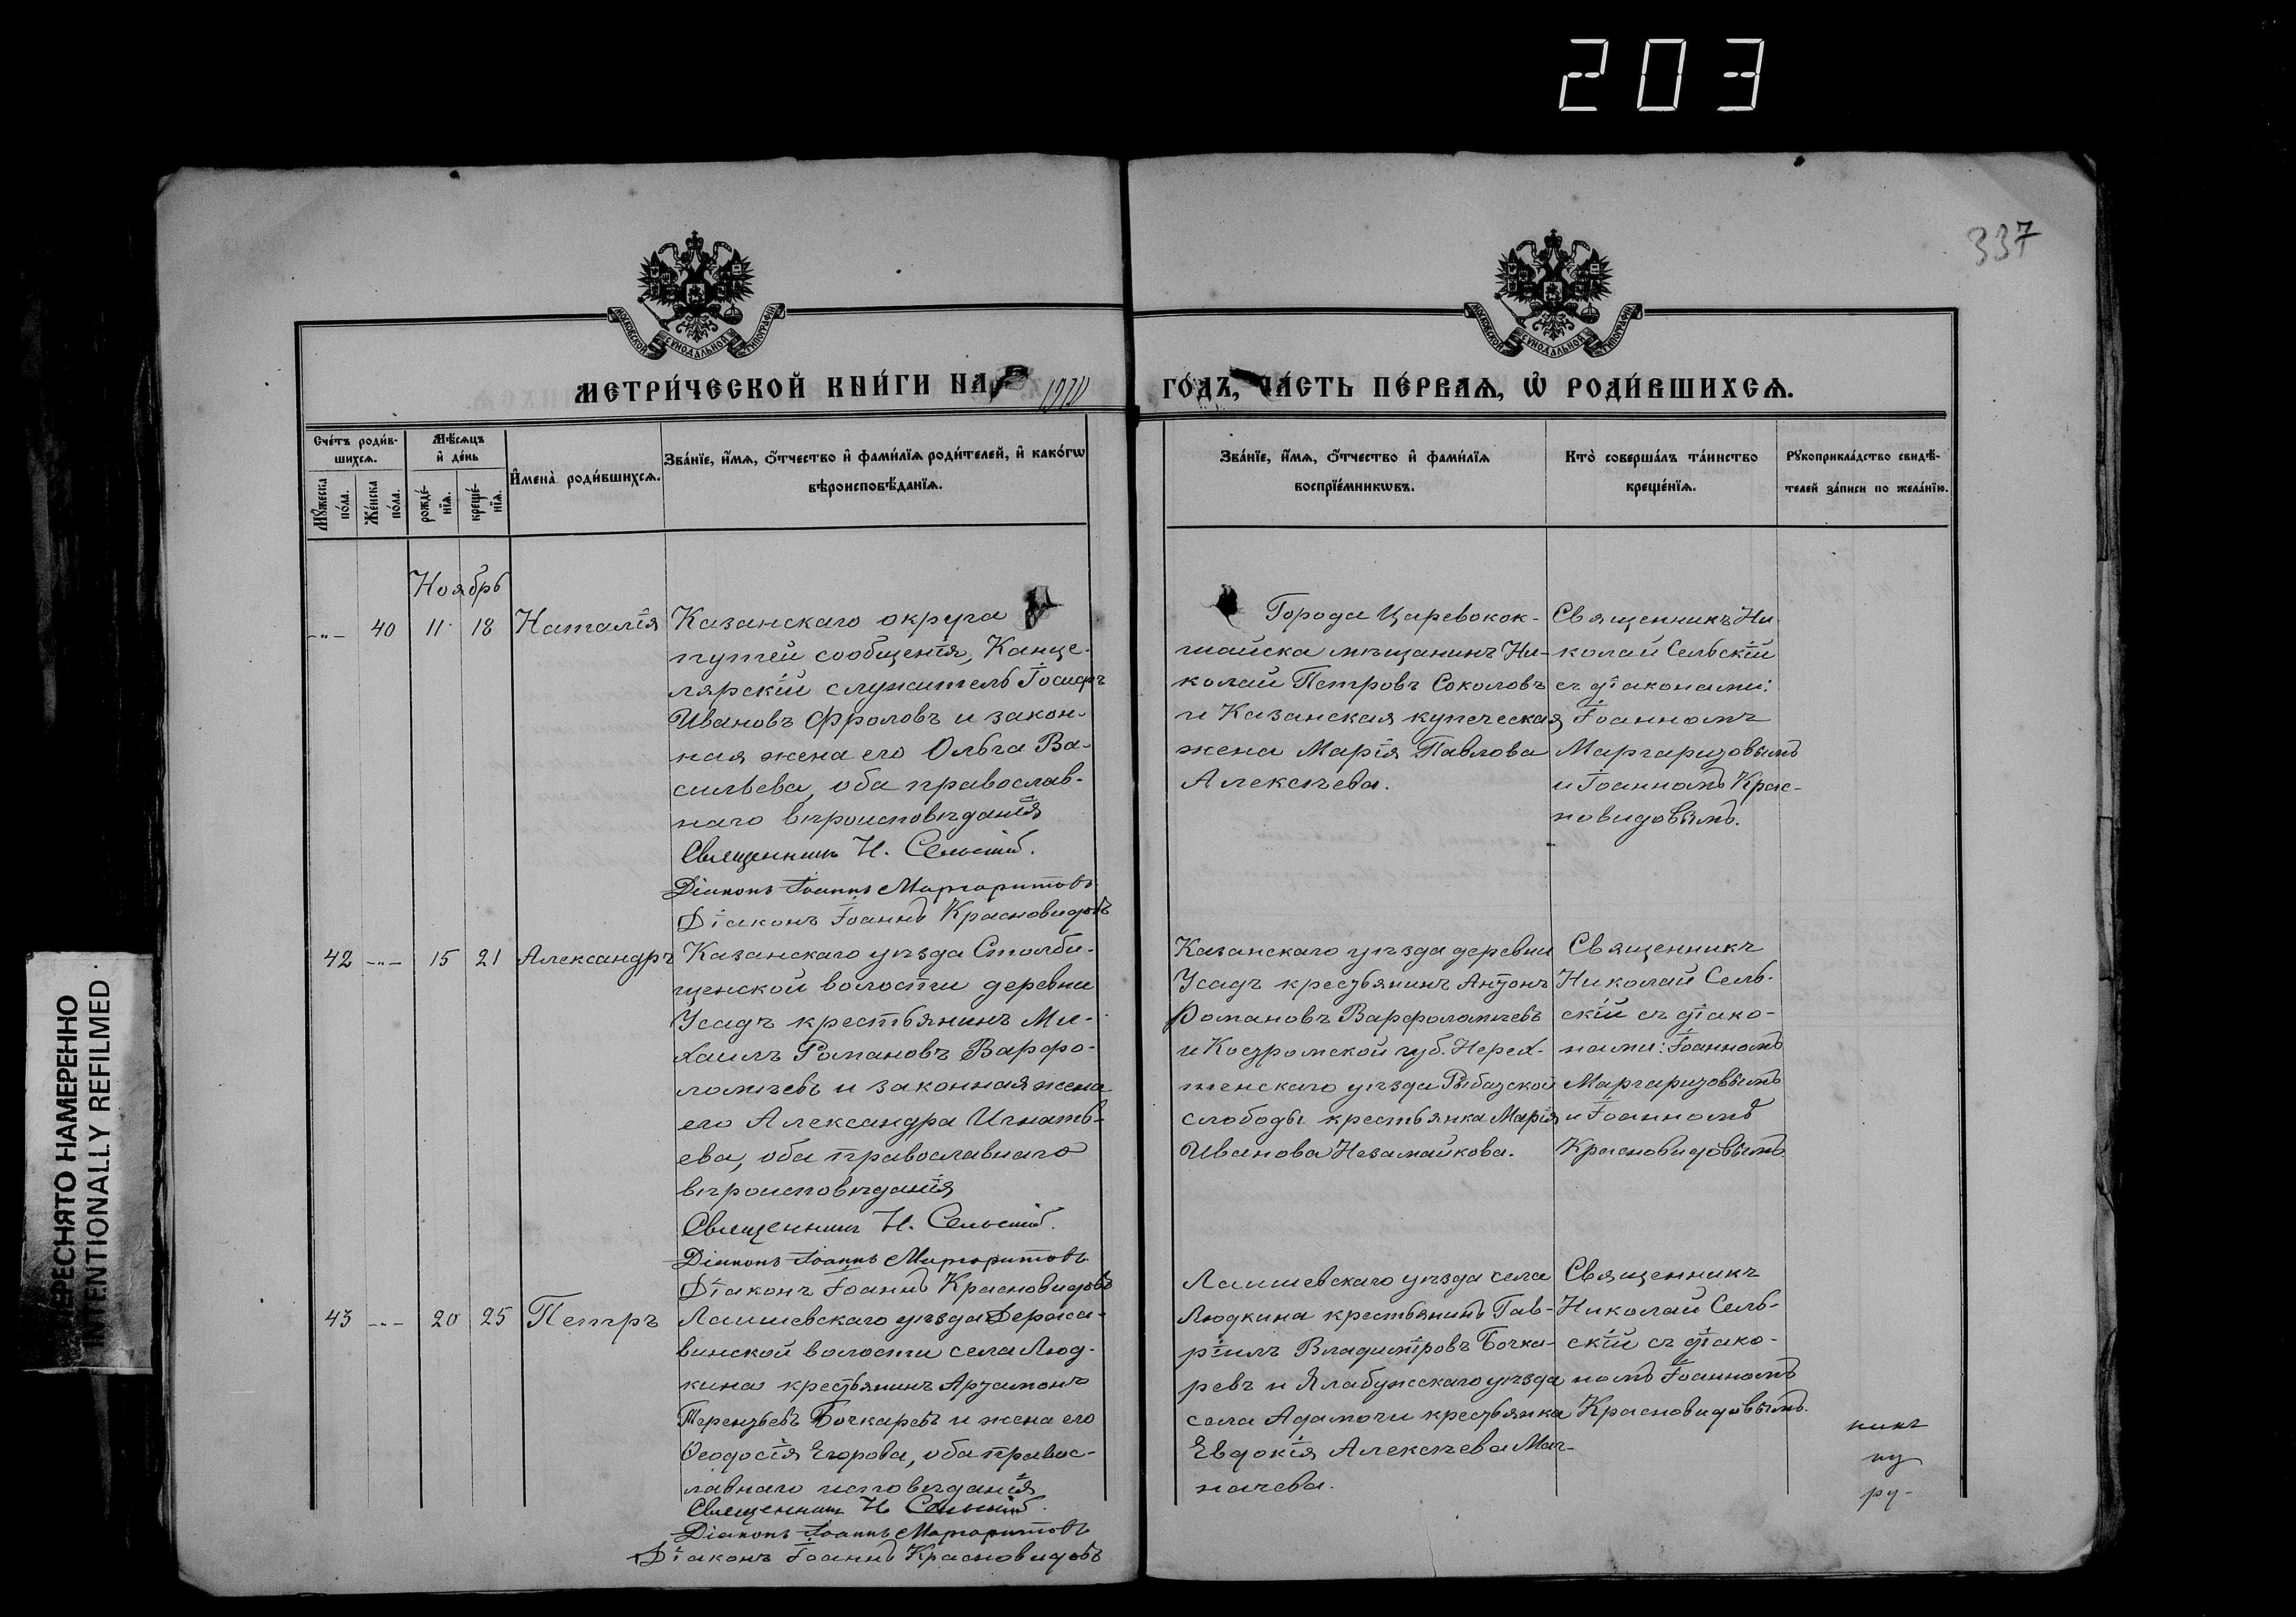 203
337
МОСКОВСКОЙ СУНОДАЛЬНОЙ ТИПОГРАФІИ
МОСКОВСКОЙ СУНОДАЛЬНОЙ ТИПОГРАФІИ
МЕТРИ́ЧЕСКОЙ КНИ́ГИ НА 1910
ГО́ДЪ, ЧА́СТЬ ПЕ́РВАѦ, Ѡ҆ РОДИ́ВШИХСѦ.
Сче́тъ роди́в-
шихсѧ.
Мꙋ́жеска по́ла.
Же́нска по́ла.
Мѣ́сѧцъ
и҆ де́нь
рожде́-
нїѧ.
креще́-
нїѧ.
И҆мена̀ роди́вшихсѧ.
Зва́нїе, и҆́мѧ, ѻ҆́тчество и҆ фами́лїѧ роди́телей, и҆ како́гѡ
вѣроисповѣ́данїѧ.
Зва́нїе, и҆́мѧ, ѻ҆́тчество и҆ фами́лїѧ
воспрїе́мникѡвъ.
Кто̀ соверша́лъ та́инство
креще́нїѧ.
Рꙋкоприкла́дство свидѣ́-
телей за́писи по жела́нїю.
Ноябрь
-"- 40 11 18 Наталія
Казанскаго округа
путей сообщенія, Канце-
лярскій служитель Іосифъ
Ивановъ Фроловъ и закон-
ная жена его Ольга Ва-
сильева, оба православ-
наго вѣроисповѣданія
Священникъ Н. Сельскій.
Діаконъ Іоаннъ Маргаритовъ
Діаконъ Іоаннъ Красновидовъ
Города Царевокок-
шайска мѣщанинъ Ни-
колай Петровъ Соколовъ
и Казанская купеческая
жена Марія Павлова
Алексѣева.
Священникъ Ни-
колай Сельскій
съ діаконами:
Іоанномъ
Маргаритовымъ
и Іоанномъ Крас-
новидовымъ.
42 -"- 15 21 Александръ
Казанскаго уѣзда Столби-
щенской волости деревни
Усадъ крестьянинъ Ми-
хаилъ Романовъ Варфо-
ломѣевъ и законная жена
его Александра Игнать-
ева, оба православнаго
вѣроисповѣданія
Священникъ Н. Сельскій.
Діаконъ Іоаннъ Маргаритовъ
Діаконъ Іоаннъ Красновидовъ
Казанскаго уѣзда деревни
Усадъ крестьянинъ Антонъ
Романовъ Варфоломѣевъ
и Костромской губ. Нерех-
тенскаго уѣзда Рыбацской
слободы крестьянка Марія
Иванова Незамайкова.
Священникъ
Николай Сель-
скій съ діако-
нами: Іоанномъ
Маргаритовымъ
и Іоанномъ
Красновидовымъ.
43 -"- 20 25 Петръ
Лаишевскаго уѣзда Держа-
винской волости села Люд-
кина крестьянинъ Артамонъ
Терентьевъ Бочкаревъ и жена его
Ѳеодосія Егорова, оба правос-
лавнаго исповѣданія
Священникъ Н Сельскій.
Діаконъ Іоаннъ Маргаритовъ
Діаконъ Іоаннъ Красновидовъ
Лаишевскаго уѣзда села
Людкина крестьянинъ Гав-
ріилъ Владиміровъ Бочка-
ревъ и Елабужскаго уѣзда
села Адамочи крестьянка
Евдокія Алексѣева
начева.
Священникъ
Николай Сель-
скій съ діако-
номъ Іоанномъ
Красновидовымъ.
никъ
ну
ру-
ПЕРЕСНЯТО НАМЕРЕННО
INTENTIONALLY REFILMED